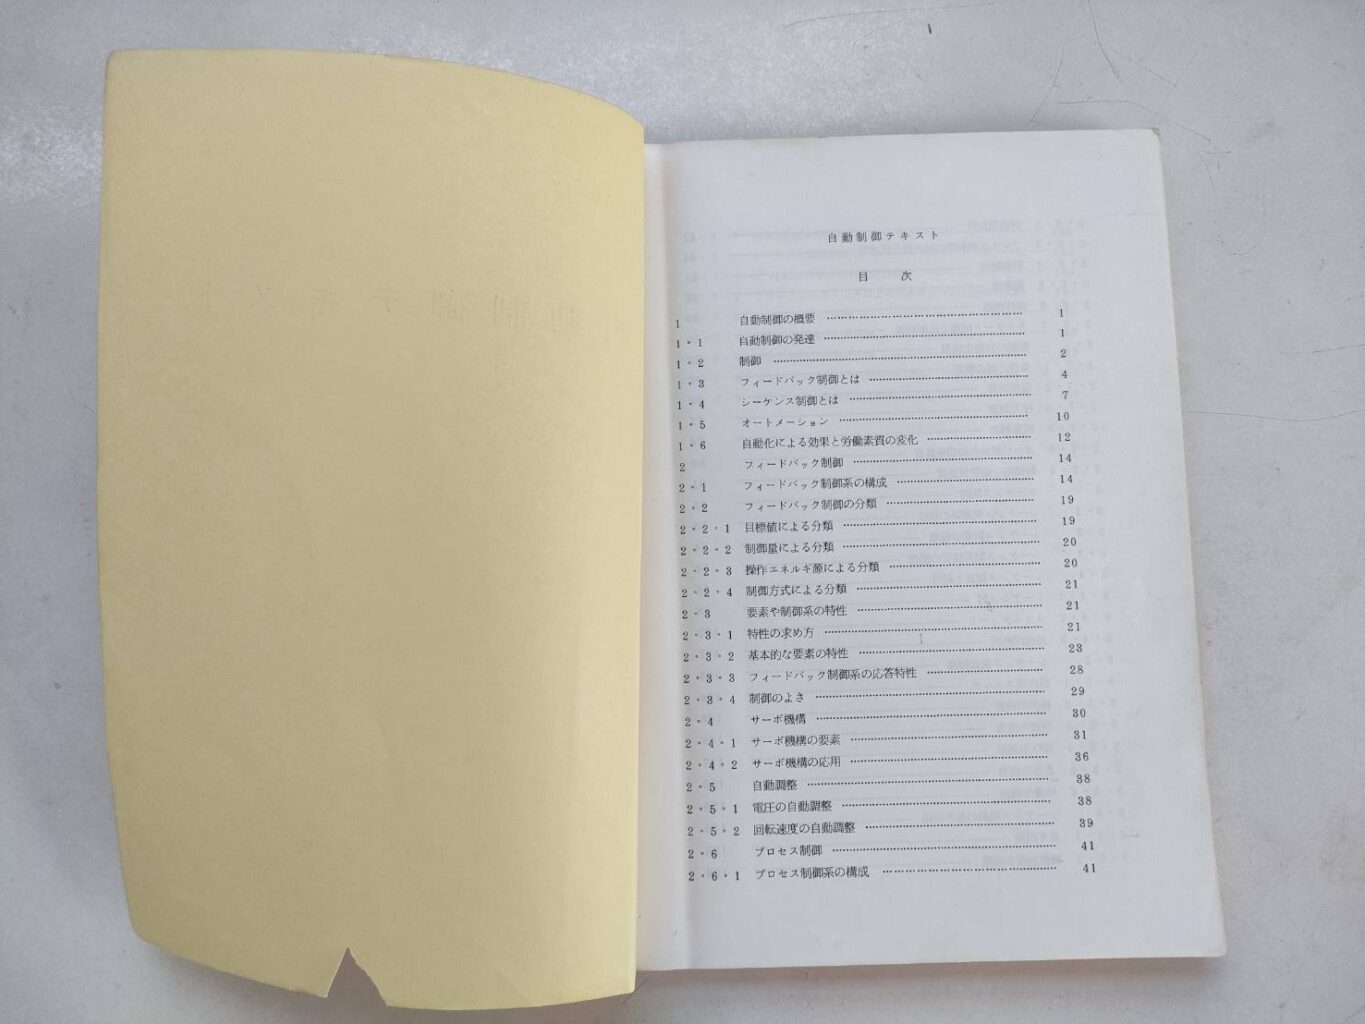 自動制御テキスト
目 次
1 自動制御の概要 ……… 1
1・1 自動制御の発達 ……… 1
1・2 制御 ……… 2
1・3 フィードバック制御とは ……… 4
1・4 シーケンス制御とは ……… 7
1・5 オートメーション ……… 10
1・6 自動化による効果と労働素質の変化 ……… 12
2 フィードバック制御 ……… 14
2・1 フィードバック制御系の構成 ……… 14
2・2 フィードバック制御の分類 ……… 19
2・2・1 目標値による分類 ……… 19
2・2・2 制御量による分類 ……… 20
2・2・3 操作エネルギ源による分類 ……… 20
2・2・4 制御方式による分類 ……… 21
2・3 要素や制御系の特性 ……… 21
2・3・1 特性の求め方 ……… 21
2・3・2 基本的な要素の特性 ……… 23
2・3・3 フィードバック制御系の応答特性 ……… 28
2・3・4 制御のよさ ……… 29
2・4 サーボ機構 ……… 30
2・4・1 サーボ機構の要素 ……… 31
2・4・2 サーボ機構の応用 ……… 36
2・5 自動調整 ……… 38
2・5・1 電圧の自動調整 ……… 38
2・5・2 回転速度の自動調整 ……… 39
2・6 プロセス制御 ……… 41
2・6・1 プロセス制御系の構成 ……… 41